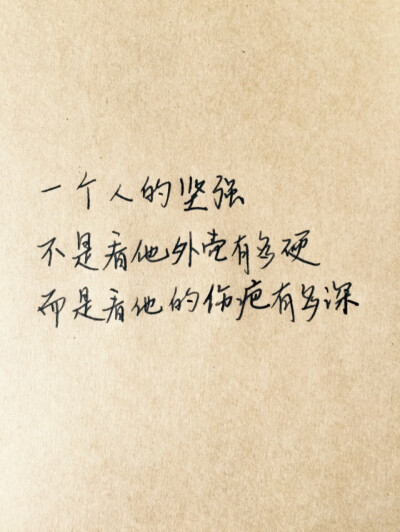 一个人的坚强
不是看他外壳有多硬
而是看他的伤疤有多深